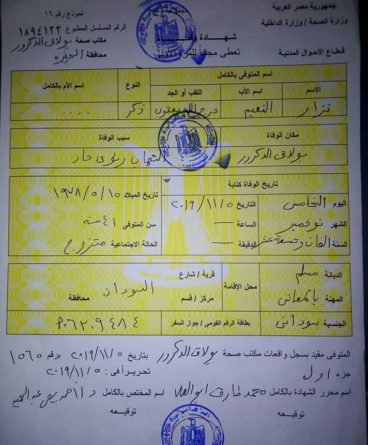 جمهورية مصر العربية
وزارة الصحة / وزارة الداخلية
قطاع الأحوال المدنية
نموذج رقم ١٦
الرقم المسلسل المطبوع ١٨٩٤١٢٣
مكتب صحة بولاق الدكرور
محافظة الجيزة
شهادة
تعطى مجاناً للمرة الأولى
اسم المتوفي بالكامل
الاسم اسم الأب اللقب أو الجد النوع اسم الأم بالكامل
نزار النعيم ذكر .....
مكان الوفاة سبب الوفاة
بولاق الدكرور التهاب رئوي حاد
تاريخ الوفاة كتابة
اليوم الخامس التاريخ ٢٠١٩/١١/٥ تاريخ الميلاد ١٩٧٨/٥/١٥
الشهر نوفمبر الساعة — سن المتوفي ٤١ سنة
السنة ألفان وتسعة عشر الدقيقة — الحالة الاجتماعية متزوج
الديانة مسلم قرية / شارع
المهنة بالمعاش محل الإقامة مركز / قسم السودان
محافظة
الجنسية سوداني بطاقة الرقم القومي / جواز السفر
المتوفي مقيد بسجل واقعات مكتب صحة بولاق الدكرور بتاريخ ٢٠١٩/١١/٥ برقم ١٥٦٥
جزء أول تحريراً في : ٢٠١٩/١١/٥
اسم محرر الشهادة بالكامل محمد طارق أبو العلا اسم المختص بالكامل
توقيعه توقيعه